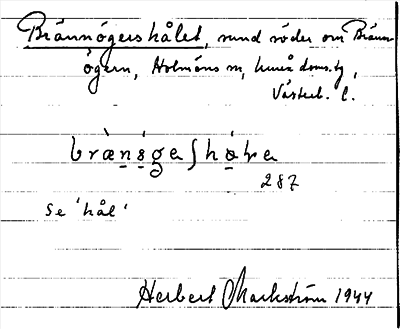 Brännögershålet, sund söder om Bränn-
ögern, Holmöns sn, Umeå doms.g,
Västerb. l.
brän̲ö̲gerʃhå̲ɫa
287
Se 'hål'
Herbert Markström 1944